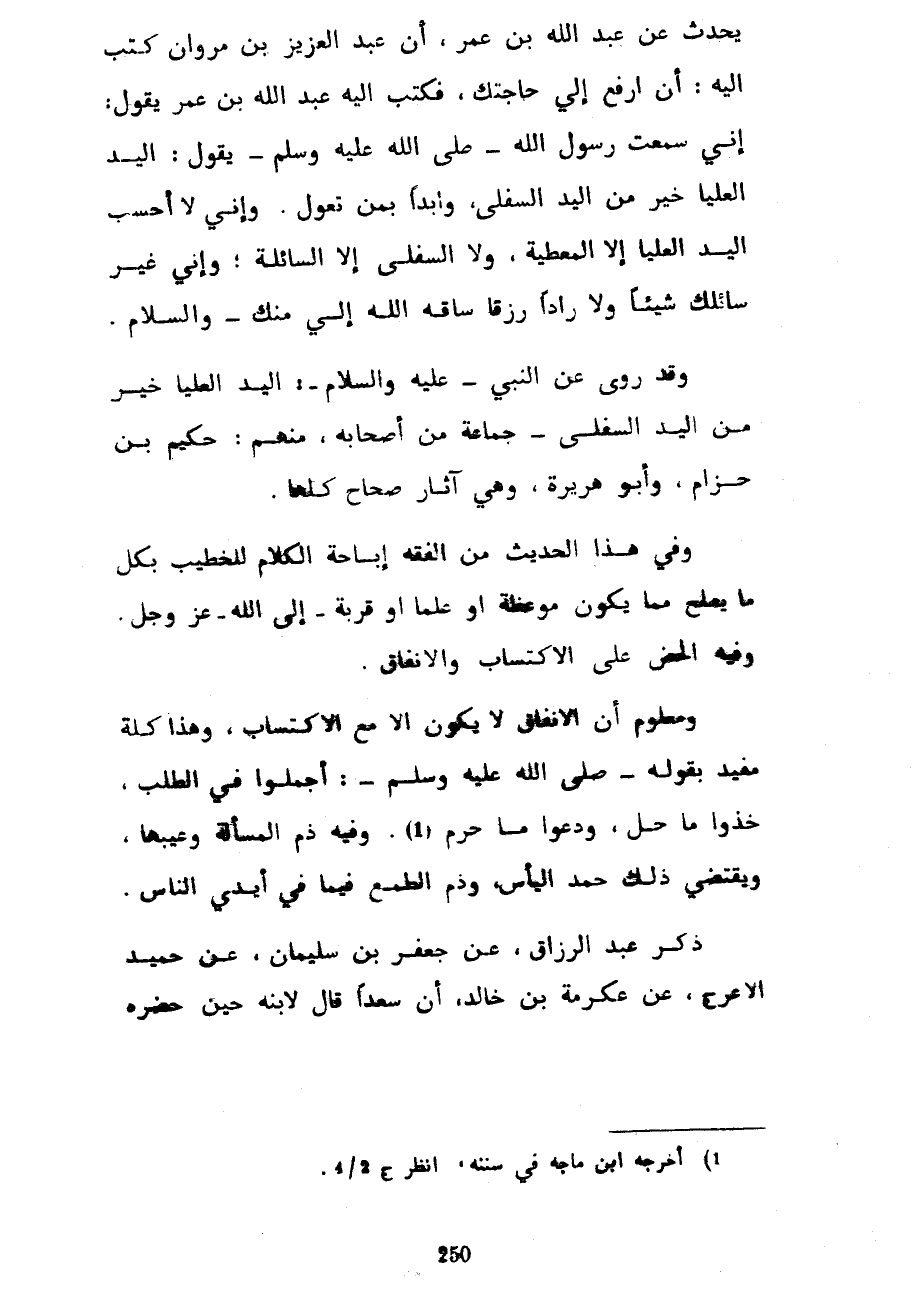 يحدث عن عبد الله بن عمر ، أن عبد العزيز بن مروان كتب
اليه : أن ارفع إلي حاجتك ، فكتب اليه عبد الله بن عمر يقول:
إني سمعت رسول الله - صلى الله عليه وسلم - يقول : اليد
العليا خير من اليد السفلى، وابدأ بمن تعول . وإني لا أحسب
اليد العليا إلا المعطية ، ولا السفلى إلا السائلة ؛ وإني غير
سائلك شيئاً ولا راداً رزقا ساقه الله إلي منك - والسلام .
وقد روى عن النبي - عليه والسلام -: اليد العليا خير
من اليد السفلى - جماعة من أصحابه ، منهم : حكيم بن
حزام ، وأبو هريرة ، وهي آثار صحاح كلها .
وفي هذا الحديث من الفقه إباحة الكلام للخطيب بكل
ما يصلح مما يكون موعظة او علما او قربة - إلى الله - عز وجل .
وفيه الحض على الاكتساب والانفاق .
ومعلوم أن الانفاق لا يكون الا مع الاكتساب ، وهذا كلة
مفيد بقوله - صلى الله عليه وسلم - : أجملوا في الطلب ،
خذوا ما حل ، ودعوا ما حرم (1) . وفيه ذم المسألة وعيبها ،
ويقتضي ذلك حمد اليأس، وذم الطمع فيما في أيدي الناس .
ذكر عبد الرزاق ، عن جعفر بن سليمان ، عن حميد
الاعرج ، عن عكرمة بن خالد، أن سعداً قال لابنه حين حضره
1) أخرجه ابن ماجه في سننه ، انظر ج 2/4 .
250